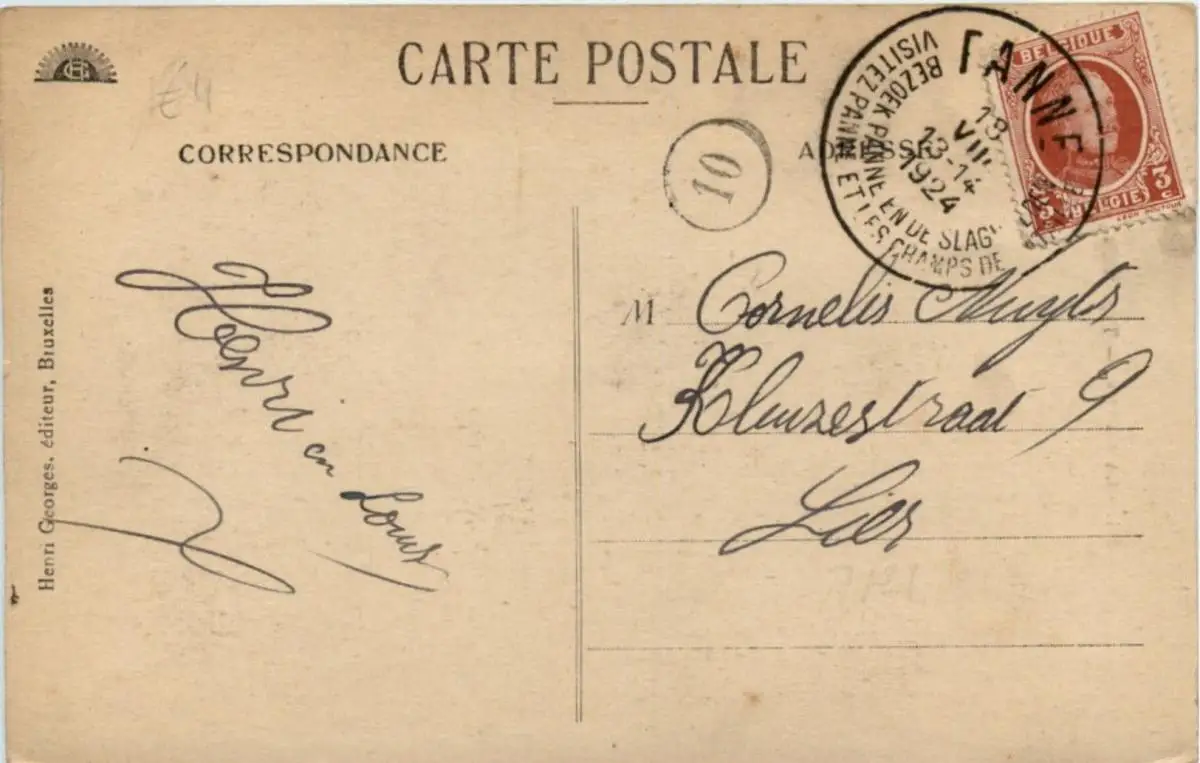 CARTE POSTALE
CORRESPONDANCE
ADRESSE
10
PANNE
18
VIII
13-14
1924
BEZOEK PANNE EN DE SLAG
VISITEZ PANNE ET LES CHAMPS DE
BELGIQUE
3 c
BELGIE
3
Henri en
Louis
M Cornelis Muyls
Kluizestraat 9
Lier
Henri Georges, éditeur, Bruxelles
£4